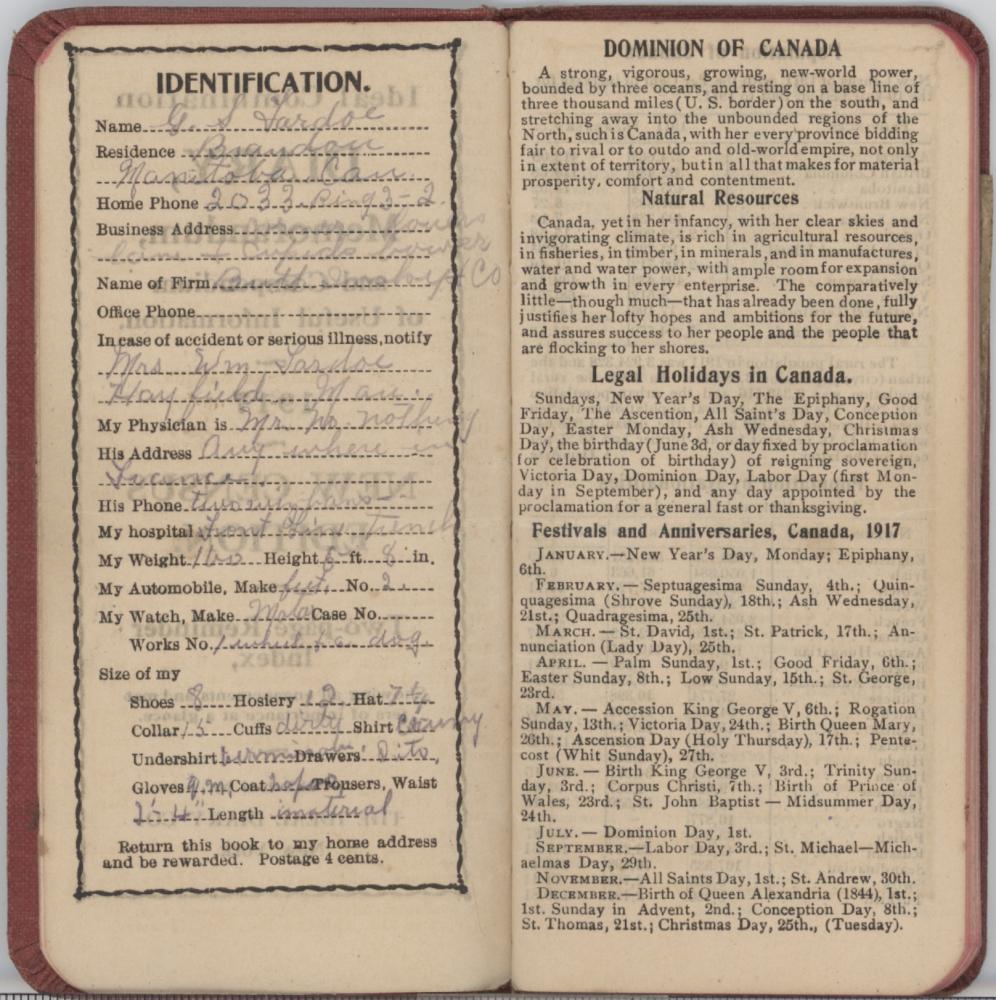 IDENTIFICATION.
Name G. S Tardoe
Residence Brandon
Manitoba Can
Home Phone 2033 Ring 3-2
Business Address
Cupids bower
Name of Firm & Co
Office Phone
In case of accident or serious illness, notify
Mrs Wm Tardoe
Hayfield Man.
My Physician is Mr. no nothing
His Address Any where in
His Phone
My hospital Front Line Trench
My Weight 160 Height 5 ft. 8 in.
My Automobile, Make feet No. 2
My Watch, Make Case No.
Works No. 1 wheel & a dog
Size of my
Shoes 8 Hosiery 12 Hat 7
Collar 15 Cuffs dirty Shirt
Undershirt Drawers Dito
Gloves Coat Trousers, Waist
Length imaterial
Return this book to my home address
and be rewarded. Postage 4 cents.
DOMINION OF CANADA
A strong, vigorous, growing, new-world power,
bounded by three oceans, and resting on a base line of
three thousand miles (U. S. border) on the south, and
stretching away into the unbounded regions of the
North, such is Canada, with her every province bidding
fair to rival or to outdo and old-world empire, not only
in extent of territory, but in all that makes for material
prosperity, comfort and contentment.
Natural Resources
Canada, yet in her infancy, with her clear skies and
invigorating climate, is rich in agricultural resources,
in fisheries, in timber, in minerals, and in manufactures,
water and water power, with ample room for expansion
and growth in every enterprise. The comparatively
little—though much—that has already been done, fully
justifies her lofty hopes and ambitions for the future,
and assures success to her people and the people that
are flocking to her shores.
Legal Holidays in Canada.
Sundays, New Year's Day, The Epiphany, Good
Friday, The Ascention, All Saint's Day, Conception
Day, Easter Monday, Ash Wednesday, Christmas
Day, the birthday (June 3d, or day fixed by proclamation
for celebration of birthday) of reigning sovereign,
Victoria Day, Dominion Day, Labor Day (first Mon-
day in September), and any day appointed by the
proclamation for a general fast or thanksgiving.
Festivals and Anniversaries, Canada, 1917
JANUARY.—New Year's Day, Monday; Epiphany,
6th.
FEBRUARY.— Septuagesima Sunday, 4th.; Quin-
quagesima (Shrove Sunday), 18th.; Ash Wednesday,
21st.; Quadragesima, 25th.
MARCH.— St. David, 1st.; St. Patrick, 17th.; An-
nunciation (Lady Day), 25th.
APRIL. — Palm Sunday, 1st.; Good Friday, 6th.;
Easter Sunday, 8th.; Low Sunday, 15th.; St. George,
23rd.
MAY. — Accession King George V, 6th.; Rogation
Sunday, 13th.; Victoria Day, 24th.; Birth Queen Mary,
26th.; Ascension Day (Holy Thursday), 17th.; Pente-
cost (Whit Sunday), 27th.
JUNE. — Birth King George V, 3rd.; Trinity Sun-
day, 3rd.; Corpus Christi, 7th.; Birth of Prince of
Wales, 23rd.; St. John Baptist — Midsummer Day,
24th.
JULY.— Dominion Day, 1st.
SEPTEMBER.—Labor Day, 3rd.; St. Michael—Mich-
aelmas Day, 29th.
NOVEMBER.—All Saints Day, 1st.; St. Andrew, 30th.
DECEMBER.—Birth of Queen Alexandria (1844), 1st.;
1st. Sunday in Advent, 2nd.; Conception Day, 8th.;
St. Thomas, 21st.; Christmas Day, 25th., (Tuesday).